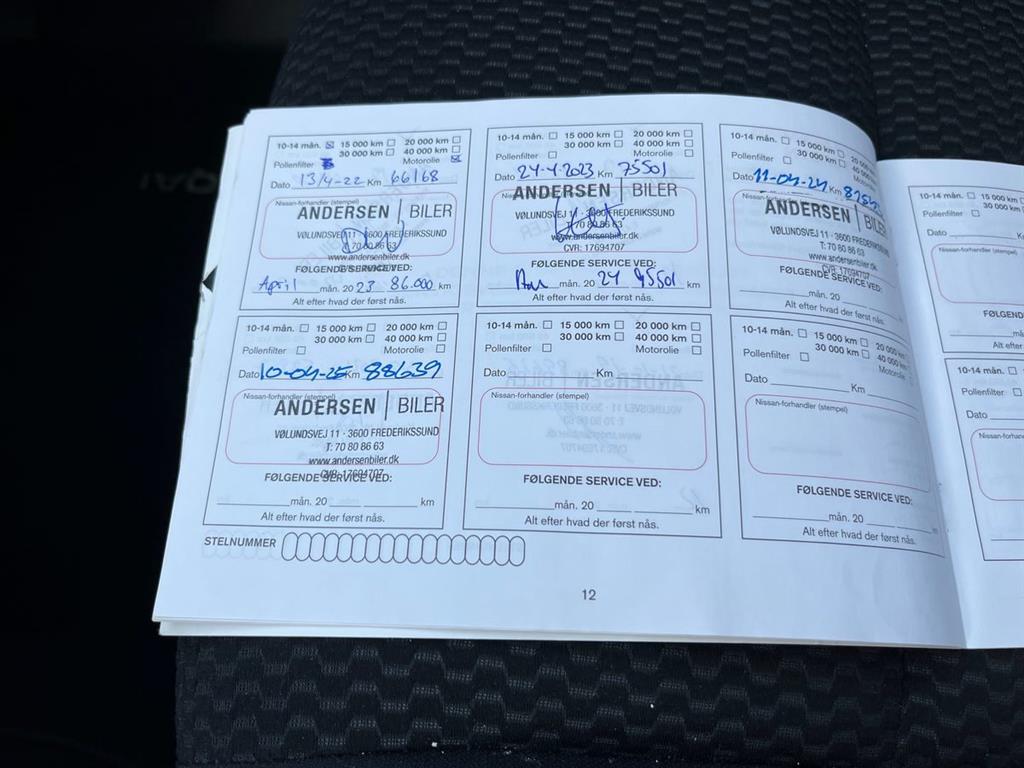 10-14 mån. ☒ 15 000 km ☐ 20 000 km ☐
30 000 km ☐ 40 000 km ☐
Pollenfilter Motorolie ☒
Dato 13/4-22 Km 66168
Nissan-forhandler (stempel)
ANDERSEN | BILER
VØLUNDSVEJ 11 · 3600 FREDERIKSSUND
T: 70 80 86 63
www.andersenbiler.dk
FØLGENDE SERVICE VED:
April mån. 20 23 86.000 km
Alt efter hvad der først nås.
10-14 mån. ☐ 15 000 km ☐ 20 000 km ☐
30 000 km ☐ 40 000 km ☐
Pollenfilter ☐ Motorolie ☐
Dato 24-4-2023 Km 75501
ANDERSEN | BILER
VØLUNDSVEJ 11 · 3600 FREDERIKSSUND
T: 70 80 86 63
www.andersenbiler.dk
CVR: 17694707
FØLGENDE SERVICE VED:
mån. 20 24 95501 km
Alt efter hvad der først nås.
10-14 mån. ☐ 15 000 km ☐ 20 000
30 000 km ☐ 40 000
Pollenfilter ☐ Motorolie
Dato 11-04-24 Km
ANDERSEN | BILER
VØLUNDSVEJ 11 · 3600 FREDERIKSSUND
T: 70 80 86 63
www.andersenbiler.dk
CVR: 17694707
FØLGENDE SERVICE VED:
mån. 20
Alt efter hvad der først nås.
10-14 mån. ☐ 15 000 km
Pollenfilter ☐ 30 000
Dato
Nissan-forhandler (stempel)
Alt efter
10-14 mån. ☐ 15 000 km ☐ 20 000 km ☐
30 000 km ☐ 40 000 km ☐
Pollenfilter ☐ Motorolie ☐
Dato 10-04-25 Km 88639
Nissan-forhandler (stempel)
ANDERSEN | BILER
VØLUNDSVEJ 11 · 3600 FREDERIKSSUND
T: 70 80 86 63
www.andersenbiler.dk
CVR: 17694707
FØLGENDE SERVICE VED:
mån. 20 km
Alt efter hvad der først nås.
10-14 mån. ☐ 15 000 km ☐ 20 000 km ☐
30 000 km ☐ 40 000 km ☐
Pollenfilter ☐ Motorolie ☐
Dato Km
Nissan-forhandler (stempel)
FØLGENDE SERVICE VED:
mån. 20 km
Alt efter hvad der først nås.
10-14 mån. ☐ 15 000 km ☐ 20 000
30 000 km ☐ 40 000
Pollenfilter ☐ Motorolie
Dato Km
Nissan-forhandler (stempel)
FØLGENDE SERVICE VED:
mån. 20
Alt efter hvad der først nås.
10-14 mån. ☐
Pollenfilter ☐
Dato
Nissan-forhandler (st
Alt e
STELNUMMER
12